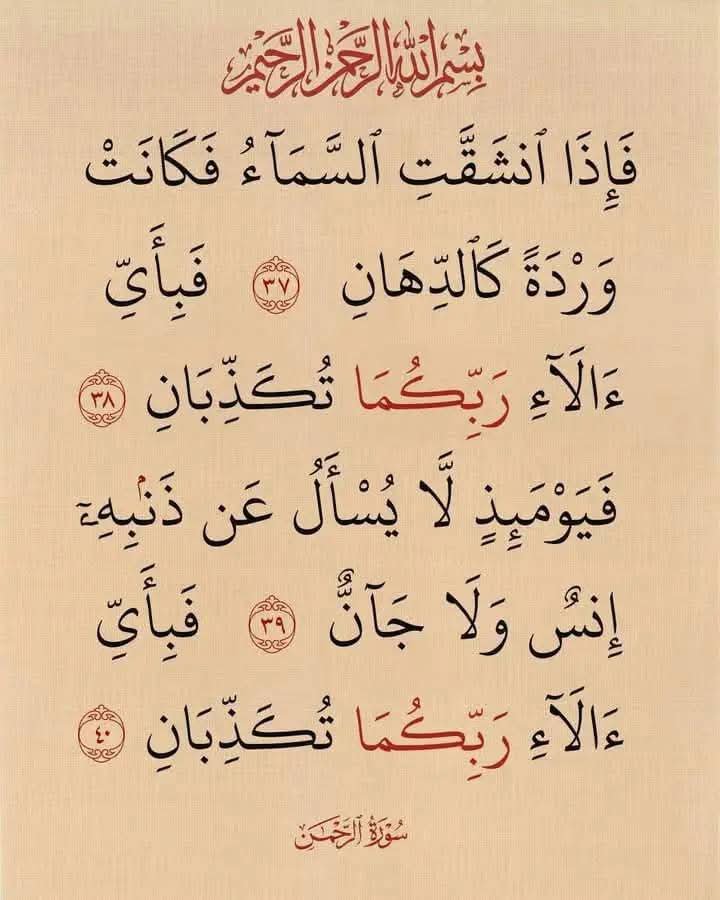 بِسْمِ اللَّهِ الرَّحْمَنِ الرَّحِيمِ
فَإِذَا ٱنشَقَّتِ ٱلسَّمَآءُ فَكَانَتْ
وَرْدَةً كَٱلدِّهَانِ ٣٧ فَبِأَيِّ
ءَالَآءِ رَبِّكُمَا تُكَذِّبَانِ ٣٨
فَيَوْمَئِذٍ لَّا يُسْأَلُ عَن ذَنۢبِهِۦٓ
إِنسٌ وَلَا جَآنٌّ ٣٩ فَبِأَيِّ
ءَالَآءِ رَبِّكُمَا تُكَذِّبَانِ ٤٠
سُورَةُ ٱلرَّحْمَٰنِ